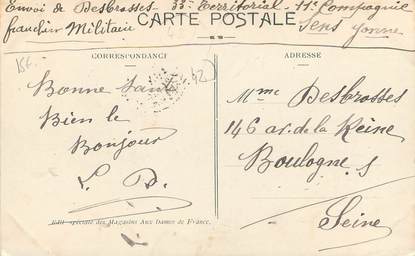 Envoi de Desbrosses - 33e Territorial - 11e Compagnie
franchise Militaire
Sens Yonne
CARTE POSTALE
CORRESPONDANCE
ADRESSE
Bonne Santé
Bien le
Bonjour
L. D.
Mme Desbrosses
146 av. de la Reine
Boulogne s
Seine
Edit. spéciale des Magasins Aux Dames de France.